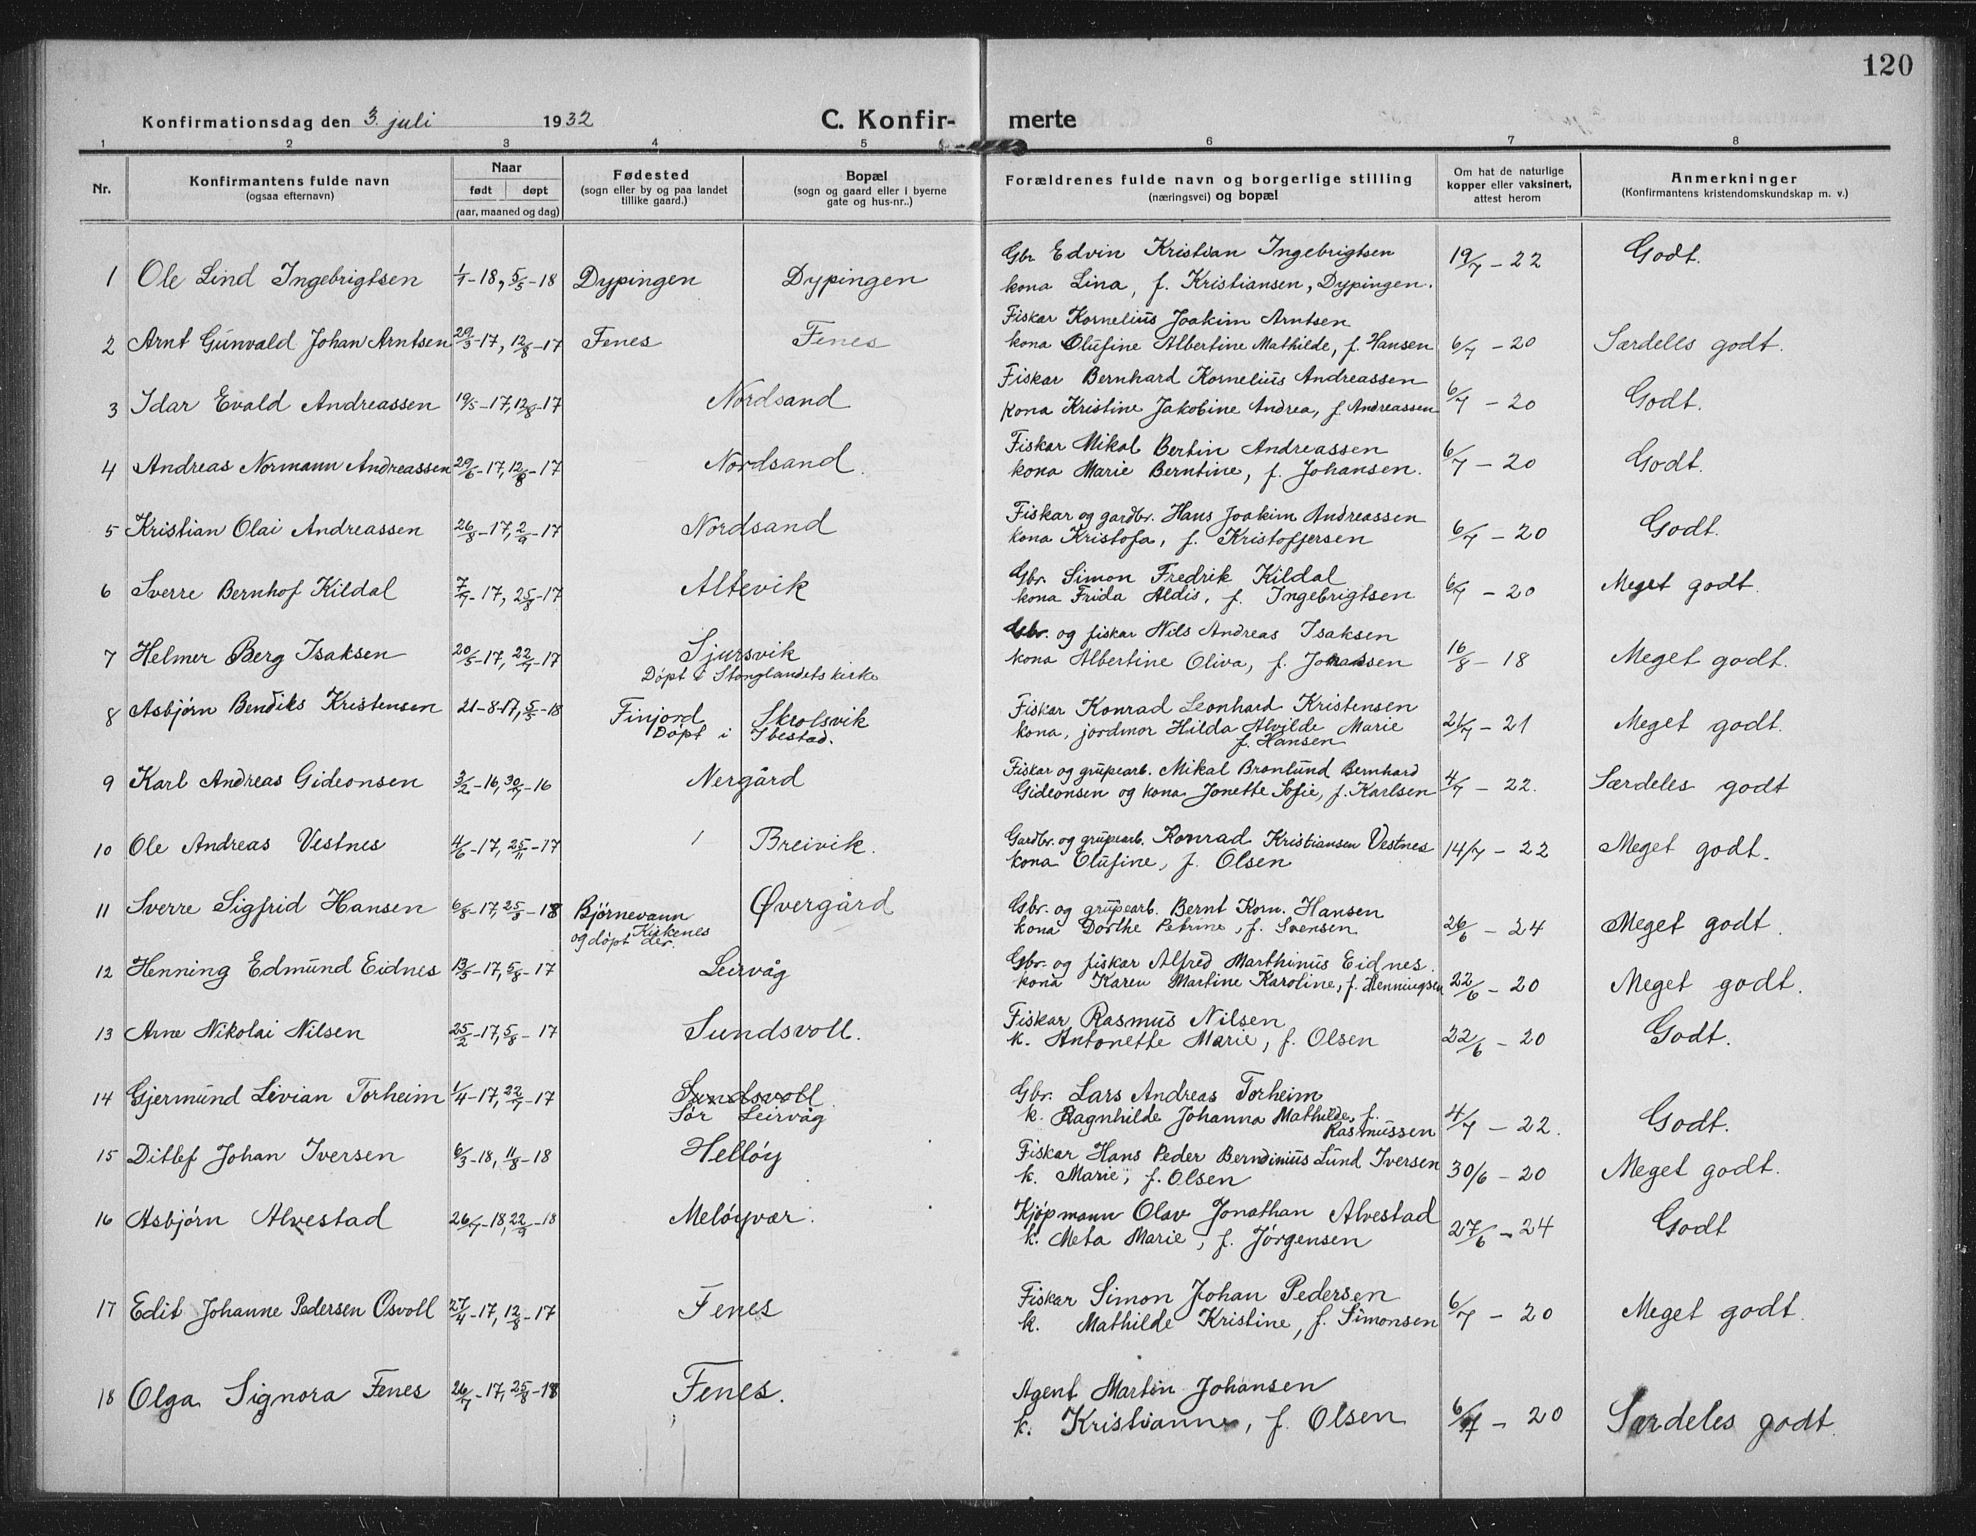 120
Konfirmationsdag den 3. juli 1932 C. Konfir- merte
1 2 3 4 5 6 7 8
Nr. Konfirmantens fulde navn (ogsaa efternavn) Naar født døpt (aar, maaned og dag) Fødested (sogn eller by og paa landet tillike gaard.) Bopæl (sogn og gaard eller i byerne gate og hus-nr..) Forældrenes fulde navn og borgerlige stilling (næringsvei) og bopæl Om hat de naturlige kopper eller vaksinert, attest herom Anmerkninger (Konfirmantens kristendomskundskap m. v.)
Gbr Edvin Kristian Ingebrigtsen
1 Ole Lind Ingebrigtsen 1/7-18, 5/5-18 Dypingen Dypingen kona Lina, f. Kristiansen, Dypingen. 19/7-22 Godt.
Fiskar Kornelius Joakim Arntsen
2 Arnt Gunvald Johan Arntsen 29/3-17, 12/8-17 Fenes Fenes kona Olufine Albertine Mathilde, f. Hansen 6/7-20 Særdeles godt.
Fiskar Bernhard Kornelius Andreassen
3 Idar Evald Andreassen 19/5-17, 12/8-17 Nordsand kona Kristine Jakobine Andrea, f. Andreassen 6/7-20 Godt.
Fiskar Mikal Bertin Andreassen
4 Andreas Normann Andreassen 29/6-17, 12/8-17 Nordsand. kona Marie Berntine, f. Johansen. 6/7-20 Godt.
Fiskar og gardbr. Hans Joakim Andreassen
5 Kristian Olai Andreassen 26/8-17, 2/9-17 Nordsand kona Kristofa, f. Kristoffersen 6/7-20 Godt.
Gbr. Simon Fredrik Kildal
6 Sverre Bernhof Kildal 7/7-17, 25/8-17 Altevik kona Frida Aldis, f. Ingebrigtsen 6/7-20 Meget godt.
Gbr. og fiskar Nils Andreas Isaksen
7 Helmer Berg Isaksen 20/5-17, 22/7-17 Sjursvik kona Albertine Oliva, f. Johansen 16/8-18 Meget godt.
Døpt i Stonglandets kirke
8 Asbjørn Bendiks Kristensen 21-8-17, 5/5-18 Finjord Skrolsvik Fiskar Konrad Leonhard Kristensen 21/7-21 Meget godt.
Døpt i Ibestad. kona, jordmor Hilda Alvilde Marie
f. Hansen
Fiskar og grupearb. Mikal Bronlund Bernhard
9 Karl Andreas Gideonsen 3/2-16, 30/7-16 Nergård Gideonsen og kona Jonette Sofie, f. Karlsen 4/7-22. Særdeles godt
Gardbr. og grupearb. Konrad Kristiansen Vestnes
10 Ole Andreas Vestnes 4/6-17, 25/11-17 Breivik. kona Olufine, f. Olsen 14/7-22 Meget godt.
Gbr. og grupearb. Bernt Korn. Hansen
11 Sverre Sigfrid Hansen 6/8-17, 25/3-18 Bjørnevann Øvergård kona Dorthe Petrine, f. Svensen 26/6-24 Meget godt.
Kirkenes
og døpt der.
Gbr. og fiskar Alfred Marthinus Eidnes.
12 Henning Edmund Eidnes 13/5-17, 5/8-17 Leirvåg kona Karen Martine Karoline, f. Henningsen 22/6-20 Meget godt.
Fiskar Rasmus Nilsen
13 Arne Nikolai Nilsen 25/2-17, 5/8-17 Sundsvoll. k. Antonette Marie, f. Olsen 22/6-20 Godt.
Gbr. Lars Andreas Torheim
14 Gjermund Livian Torheim 1/4-17, 22/7-17 Sundsvoll k. Ragnhilde Johanna Mathilde, f.
Sør Leirvåg Rasmussen 4/7-22. Godt.
Fiskar Hans Peder Berndinius Lund Iversen
15 Ditlef Johan Iversen 6/3-18, 11/8-18 Helløy k. Marie, f. Olsen 30/6-20 Meget godt.
Kjøpmann Olav Jonathan Alvestad
16 Asbjørn Alvestad 26/7-18, 22/9-18 Meløyvær. k. Meta Marie, f. Jørgensen 27/6-24 Godt
Fiskar Simon Johan Pedersen
17 Edit Johanne Pedersen Osvoll 27/4-17, 12/8-17 Fenes k. Mathilde Kristine, f. Simonsen 6/7-20 Meget godt.
Agent Martin Johansen
18 Olga Signora Fenes 26/7-17, 25/8-18 Fenes. k. Kristianne, f. Olsen 6/7-20 Særdeles godt.